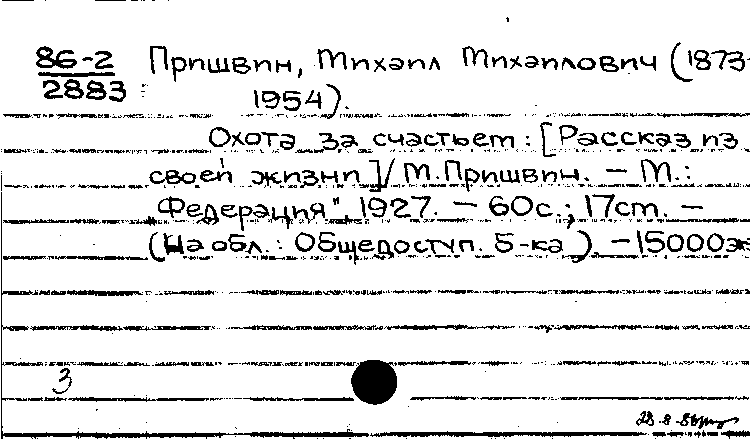 86-2 Пришвин, Михаил Михайлович (1873-
2883 1954).
Охота за счастьем : [Рассказ из
своей жизни] / М. Пришвин. – М.:
„Федерация", 1927. – 60с.; 17см. –
(На обл.: Общедоступ. б-ка). – 15000э
3
28.8.86